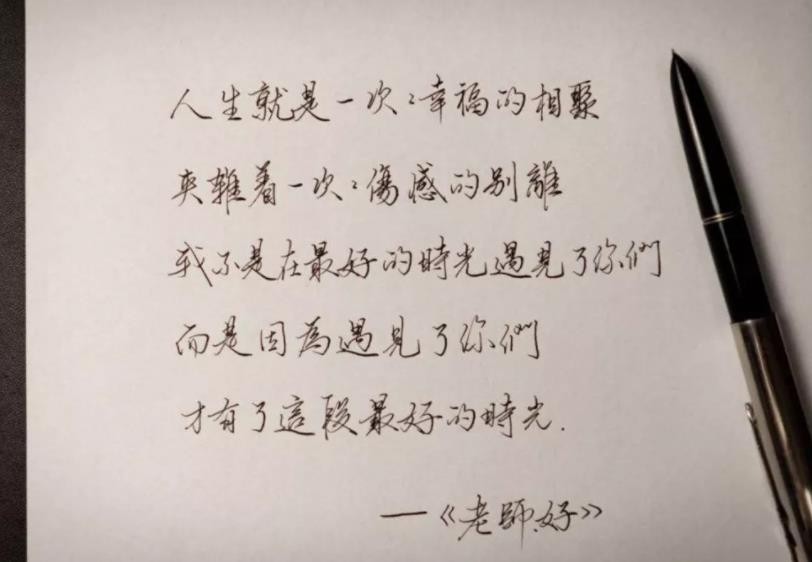 人生就是一次〻幸福的相聚
夾雜着一次〻傷感的别離
我不是在最好的時光遇見了你們
而是因為遇見了你們
才有了這段最好的時光.
—《老師.好》